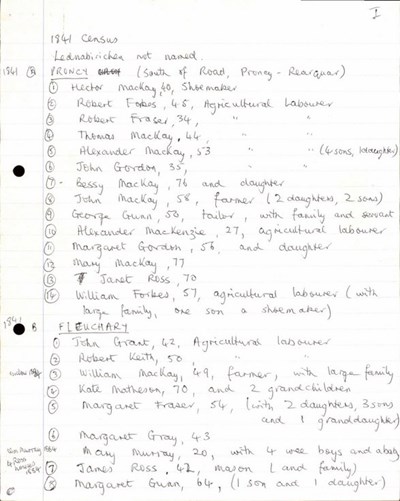 I
1841 Census
Lednabirichen not named.
1841 B PRONCY (South of Road, Proncy - Rearquar)
1 Hector MacKay, 40, Shoemaker
2 Robert Forbes, 45, Agricultural Labourer
3 Robert Fraser, 34, " "
4 Thomas MacKay, 44, " "
5 Alexander MacKay, 53 " " (4 sons, 1 daughter)
6 John Gordon, 35, " "
7 Bessy MacKay, 76 and daughter
8 John MacKay, 58, farmer (2 daughters, 2 sons)
9 George Gunn, 50, tailor, with family and servant
10 Alexander MacKenzie, 27, agricultural labourer
11 Margaret Gordon, 56, and daughter
12 Mary MacKay, 77
13 Janet Ross, 70
14 William Forbes, 57, agricultural labourer (with
large family, one son a shoemaker)
1841 B FLEUCHARY
1 John Grant, 42, Agricultural labourer
2 Robert Keith, 50, " "
3 William MacKay, 49, farmer, with large family
4 Kate Matheson, 70, and 2 grandchildren
5 Margaret Fraser, 54, (with 2 daughters, 3 sons
and 1 granddaughter)
6 Margaret Gray, 43
Mary Murray, 20, with 4 wee boys and a baby
7 James Ross, 42, mason (and family)
8 Margaret Gunn, 64, (1 son and 1 daughter)